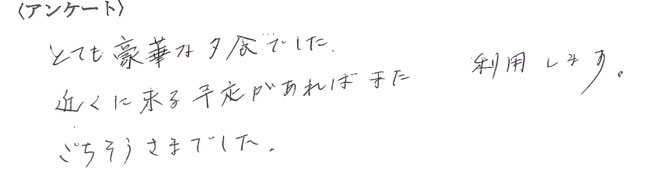 〈アンケート〉
とても豪華な夕食でした。
近くに来る予定があればまた 利用します。
ごちそうさまでした。